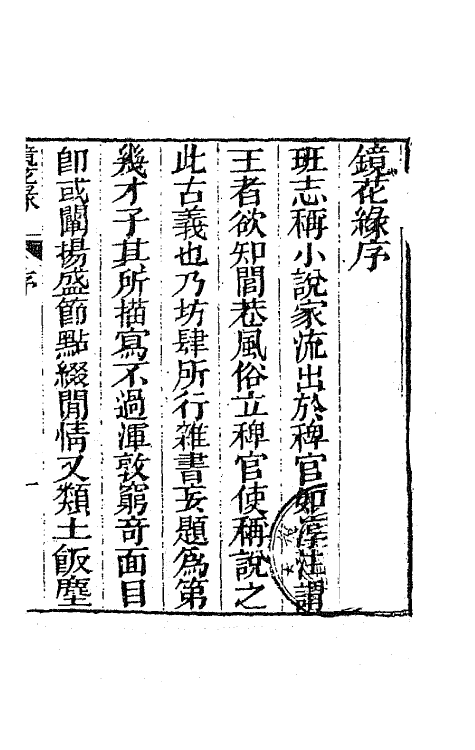 鏡花緣序
班志稱小說家流出於稗官如淳注謂
王者欲知閭巷風俗立稗官使稱說之
此古義也乃坊肆所行雜書妄題為第
幾才子其所描寫不過渾敦窮奇面目
卽或闡揚盛節點綴閒情又類土飯塵
鏡花緣 序 一